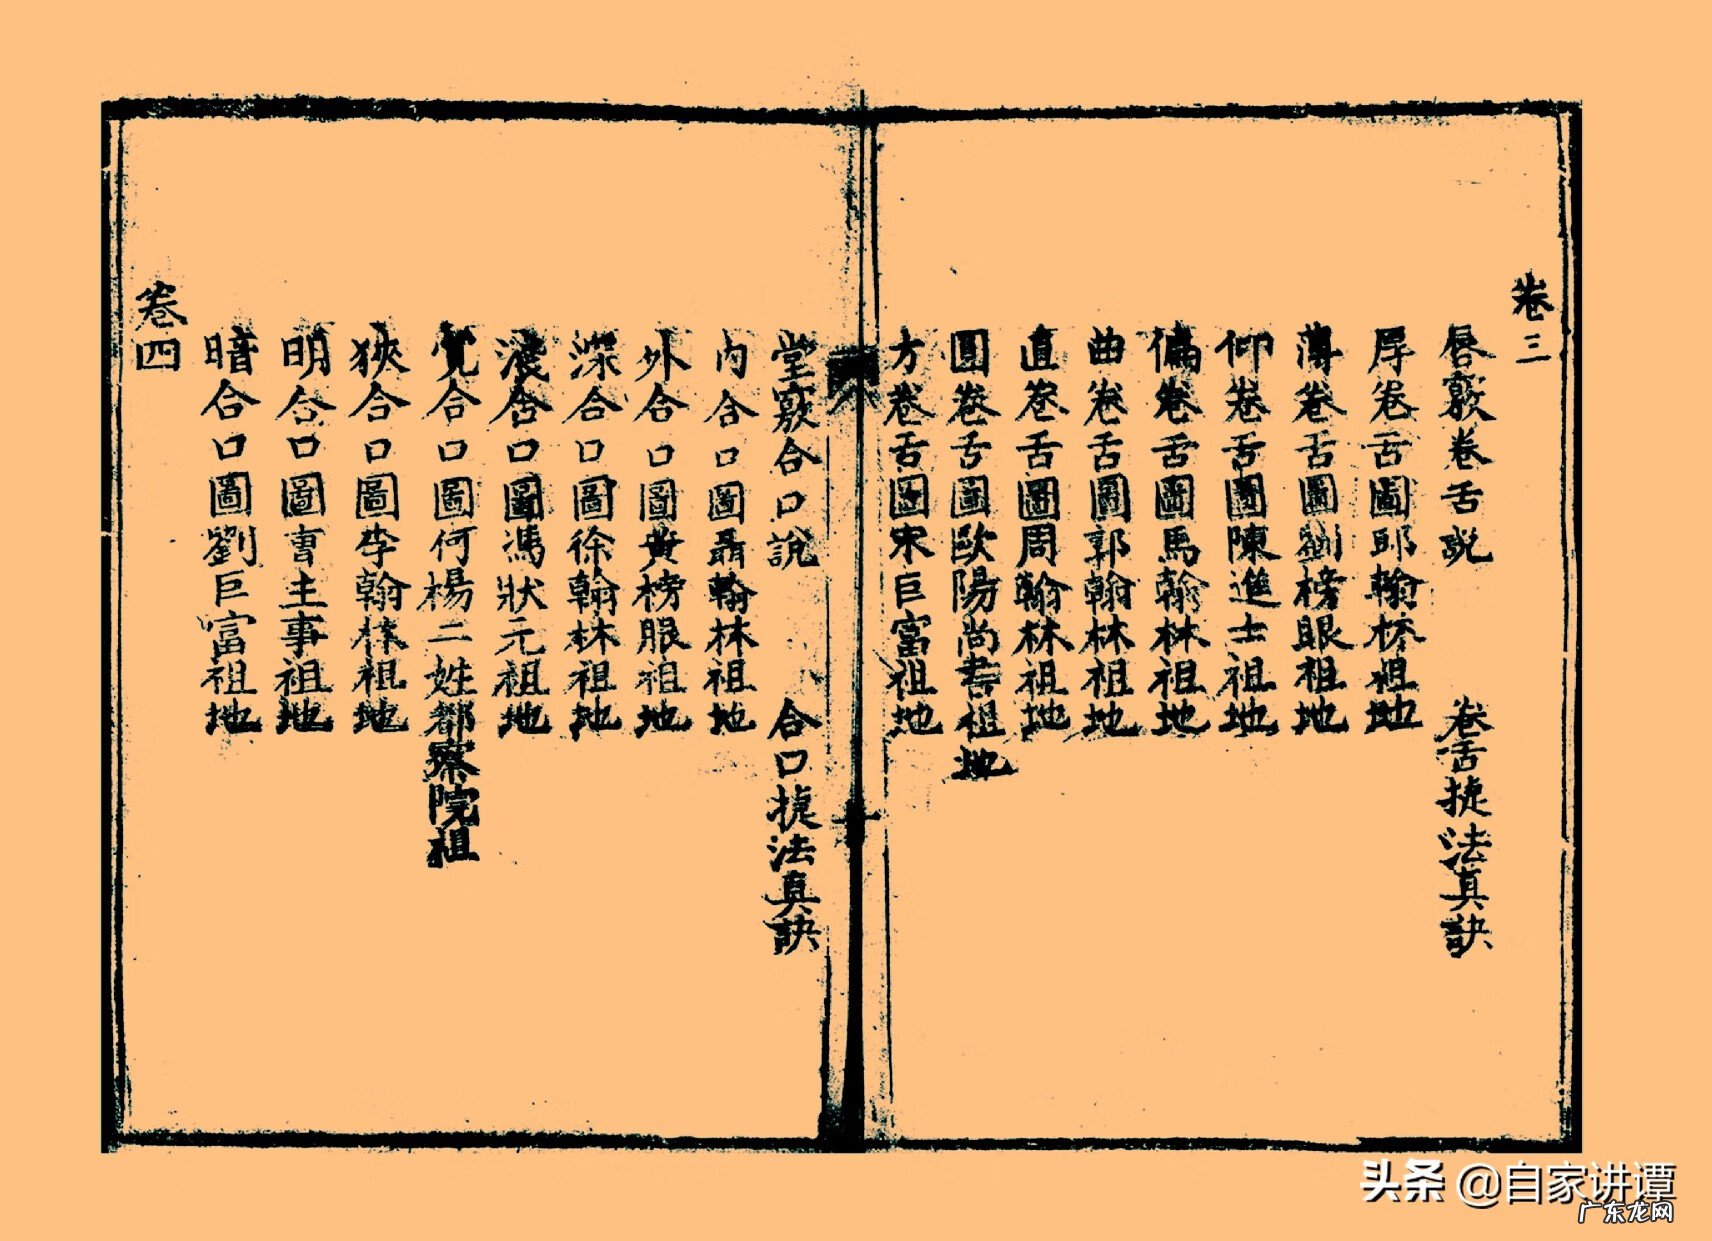 卷三
唇竅卷舌説 卷舌捷法真訣
厚卷舌圖邱翰林祖地
薄卷舌圖劉榜眼祖地
仰卷舌圖陳進士祖地
偏卷舌圖馬翰林祖地
曲卷舌圖郭翰林祖地
直卷舌圖周翰林祖地
圓卷舌圖歐陽尚書祖地
方卷舌圖宋巨富祖地
十
堂竅合口說 合口捷法真訣
內合口圖聶翰林祖地
外合口圖黄榜眼祖地
深合口圖徐翰林祖地
淺合口圖馮狀元祖地
寬合口圖何楊二姓都察院祖
狹合口圖李翰林祖地
明合口圖曹主事祖地
暗合口圖劉巨富祖地
卷四
头条 @自家讲谭
广东龙网